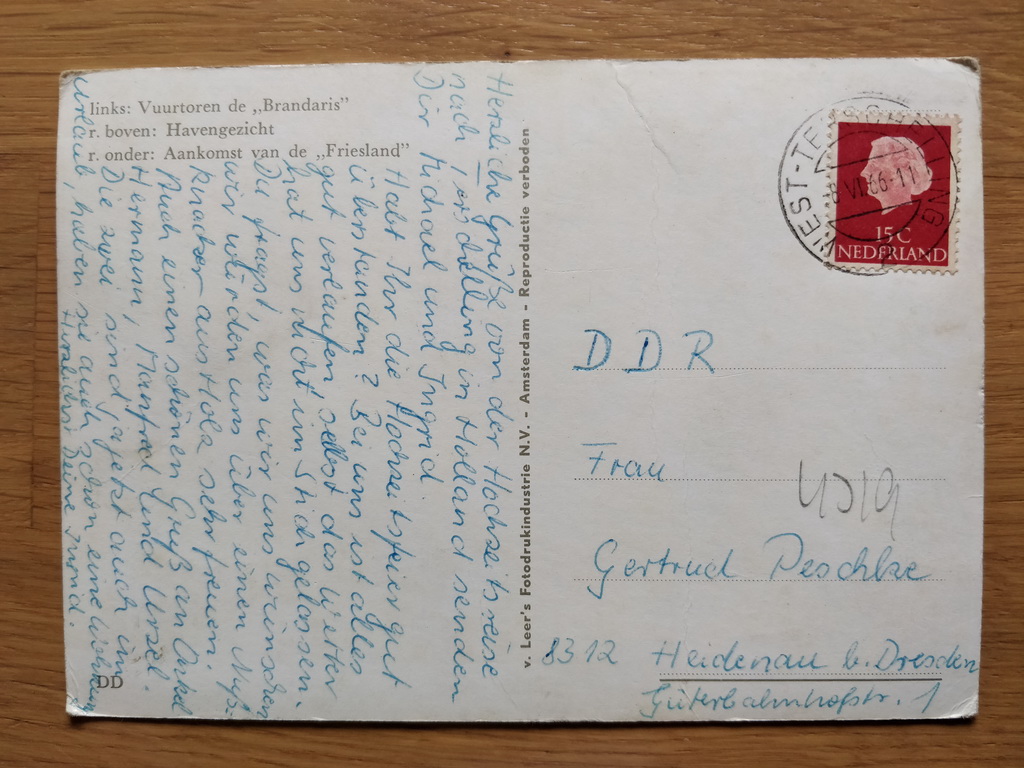 links: Vuurtoren de „Brandaris”
r. boven: Havengezicht
r. onder: Aankomst van de „Friesland”
Herzliche Grüße von der Hochzeitsreise
nach Terschelling in Holland senden
Dir Michael und Ingrid.
Habt Ihr die Hochzeitsfeier gut
überstanden? Bei uns ist alles
gut verlaufen, selbst das Wetter
hat uns nicht im Stich gelassen.
Du fragst, was wir uns wünschen,
wir würden uns über einen Nuß-
knacker aus Holz sehr freuen.
Auch einen schönen Gruß an Onkel
Hermann, Manfred und Ursel.
Die zwei sind ja jetzt auch im
Urlaub, haben sie auch schon eine Wohnung
Herzlichst Deine Ingrid.
DD
v. Leer's Fotodrukindustrie N.V. - Amsterdam - Reproductie verboden
WEST-TERSCHELLING
8 VI 66-11
15 C
NEDERLAND
DDR
Frau
Gertrud Peschke
8312 Heidenau b. Dresden
Güterbahnhofstr. 1